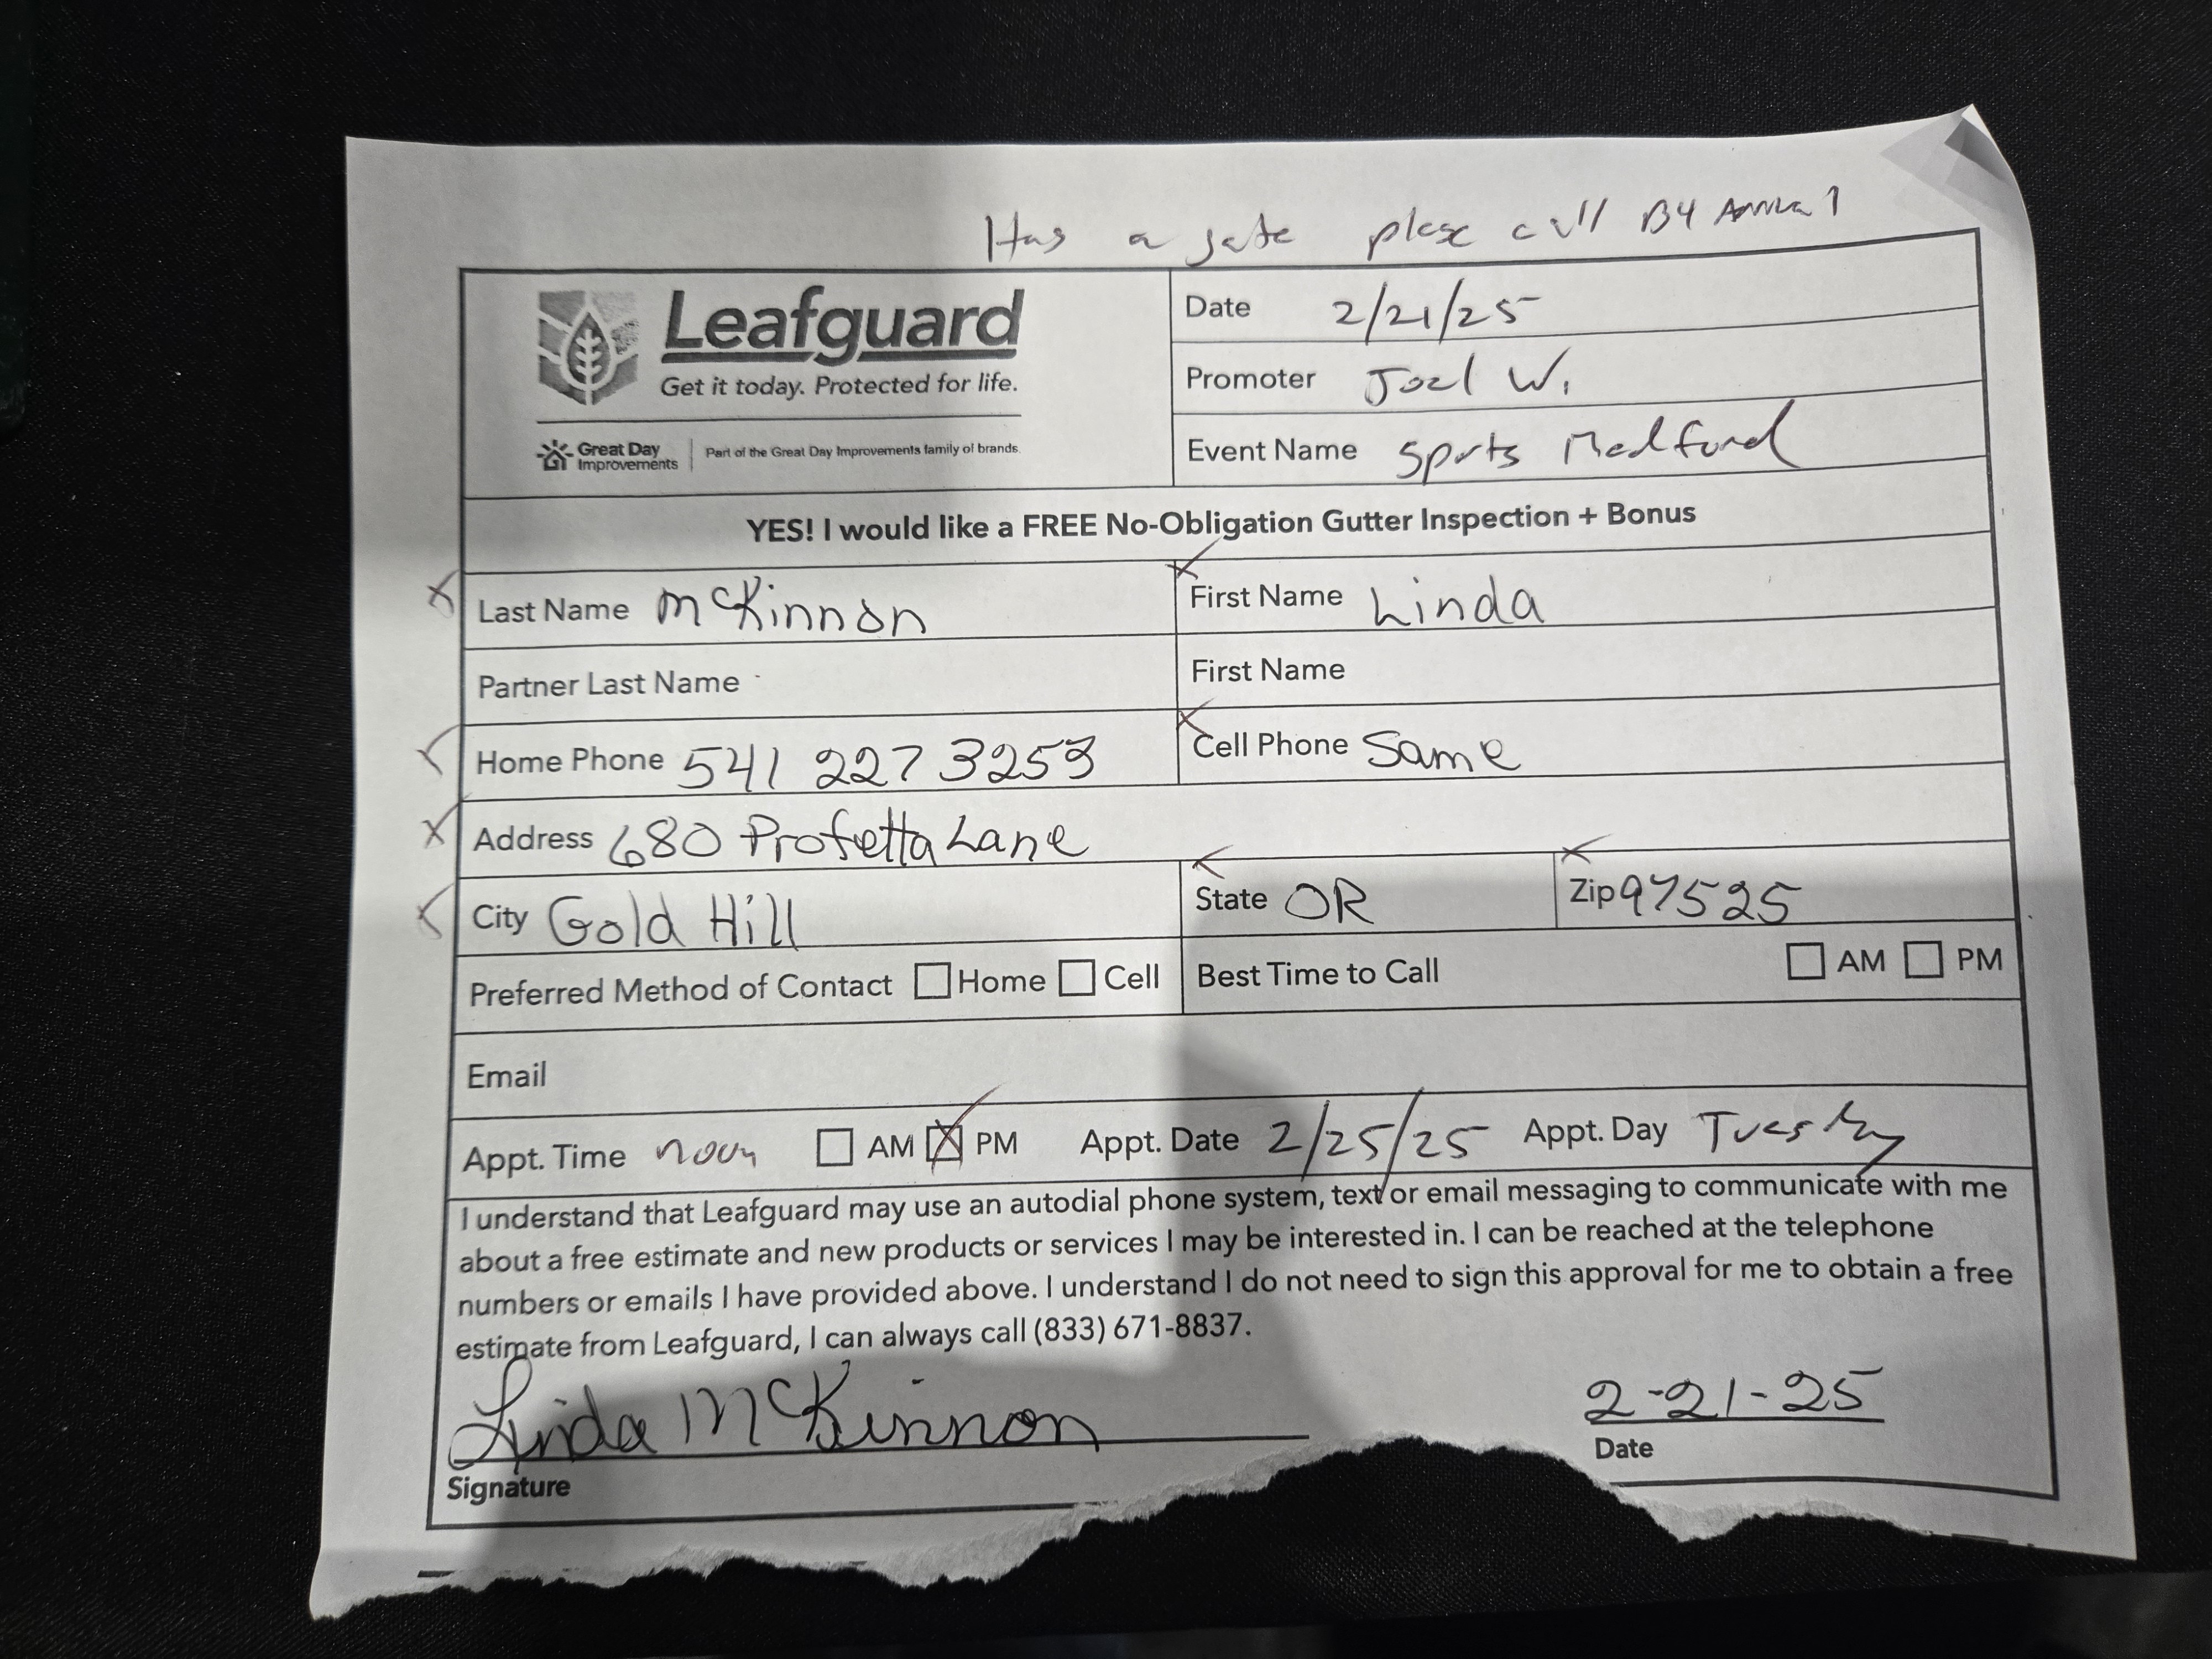 Has a gate please call B4 Arrival
Leafguard
Get it today. Protected for life.
Great Day Improvements | Part of the Great Day Improvements family of brands.
Date 2/21/25
Promoter Joel W.
Event Name Sports Medford
YES! I would like a FREE No-Obligation Gutter Inspection + Bonus
X Last Name McKinnon X First Name Linda
Partner Last Name First Name
X Home Phone 541 227 3253 X Cell Phone Same
X Address 680 Profetta Lane
X City Gold Hill X State OR X Zip 97525
Preferred Method of Contact Home Cell Best Time to Call AM PM
Email
Appt. Time noon AM X PM Appt. Date 2/25/25 Appt. Day Tuesday
I understand that Leafguard may use an autodial phone system, text or email messaging to communicate with me
about a free estimate and new products or services I may be interested in. I can be reached at the telephone
numbers or emails I have provided above. I understand I do not need to sign this approval for me to obtain a free
estimate from Leafguard, I can always call (833) 671-8837.
Linda McKinnon 2-21-25
Signature Date